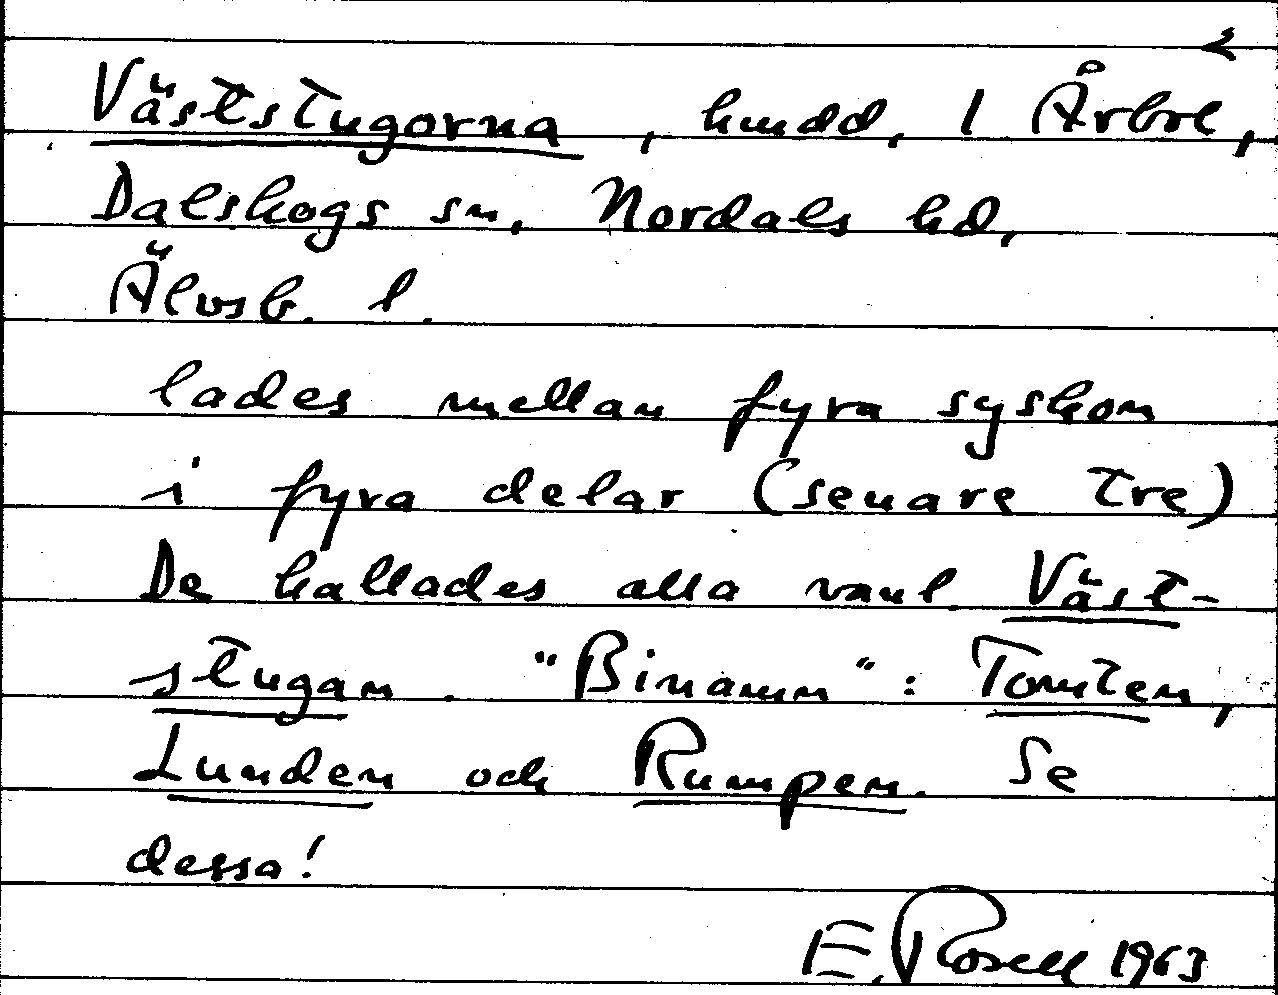 2
Väststugorna, hmdd, 1 Ärbol,
Dalskogs sn, Nordals hd,
Älvsb. l.
lades mellan fyra syskon
i fyra delar (senare tre)
De kallades alla vanl. Väst-
stugan. "Binamn": Tomten,
Lunden och Rumpen. Se
dessa!
E. Rosell 1963